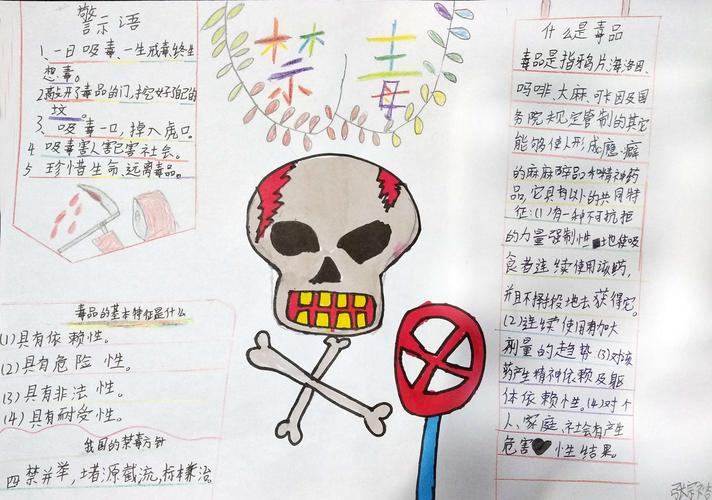 警示语
1、一日吸毒、一生戒毒、终生
想毒。
2敲开了毒品的门,挖好了自己的
坟。
3、吸毒一口,掉入虎口。
4 吸毒害人害己害社会。
5 珍惜生命、远离毒品。
毒品的基本特征是什么
(1)具有依赖性。
(2)具有危险性。
(3)具有非法性。
(4)具有耐受性。
我国的禁毒方针
四禁并举,堵源截流,标本兼治。
禁毒
什么是毒品
毒品是指鸦片、海洛因、
吗啡、大麻、可卡因及国
务院规定管制的其它
能够使人形成瘾癖
的麻麻醉品和精神药
品,它具有以的共同特
征:(1)有一种不可抗拒
的力量强制性地使吸
食者连续使用该药,
并且不择手段地去获得它。
(2)连续使用有加大
剂量的趋势(3)对该
药产生精神依赖及躯
体依赖性。(4)对个
人、家庭、社会有产生
危害性结果。